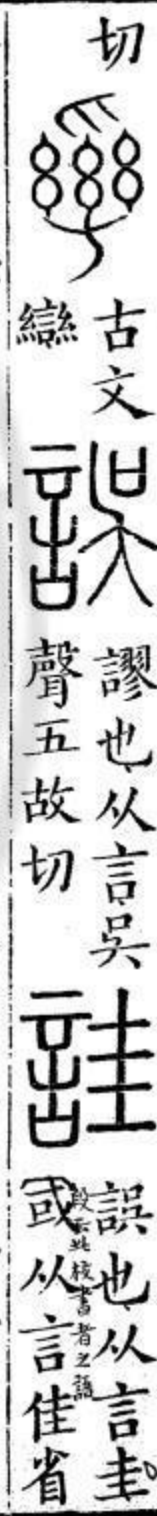 切
古文
䜌
誤
謬也从言吳
聲五故切
詿
誤也从言圭
或从言佳省
段云此校書者之語